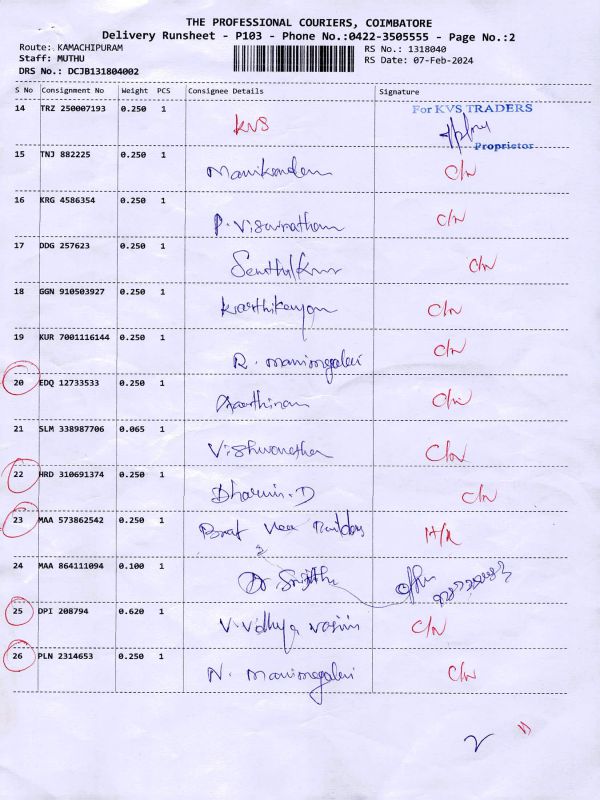 THE PROFESSIONAL COURIERS, COIMBATORE
Delivery Runsheet - P103 - Phone No.:0422-3505555 - Page No.:2
Route: KAMACHIPURAM
RS No.: 1318040
Staff: MUTHU
RS Date: 07-Feb-2024
DRS No.: DCJB131804002
S No Consignment No Weight PCS Consignee Details Signature
14 TRZ 250007193 0.250 1 KVS For KVS TRADERS
Proprietor
15 TNJ 882225 0.250 1 Manikandan C/N
16 KRG 4586354 0.250 1 P. Viswanatham C/N
17 DDG 257623 0.250 1 C/N
18 GGN 910503927 0.250 1 Karthikeyan C/N
19 KUR 7001116144 0.250 1 R. Manimegalai C/N
20 EDQ 12733533 0.250 1 C/N
21 SLM 338987706 0.065 1 Vishwanathan C/N
22 HRD 310691374 0.250 1 Dharwin.D C/N
23 MAA 573862542 0.250 1
24 MAA 864111094 0.100 1 Dr Srijithu
25 DPI 208794 0.620 1 V. Vidhya C/N
26 PLN 2314653 0.250 1 N. Manimegalai C/N